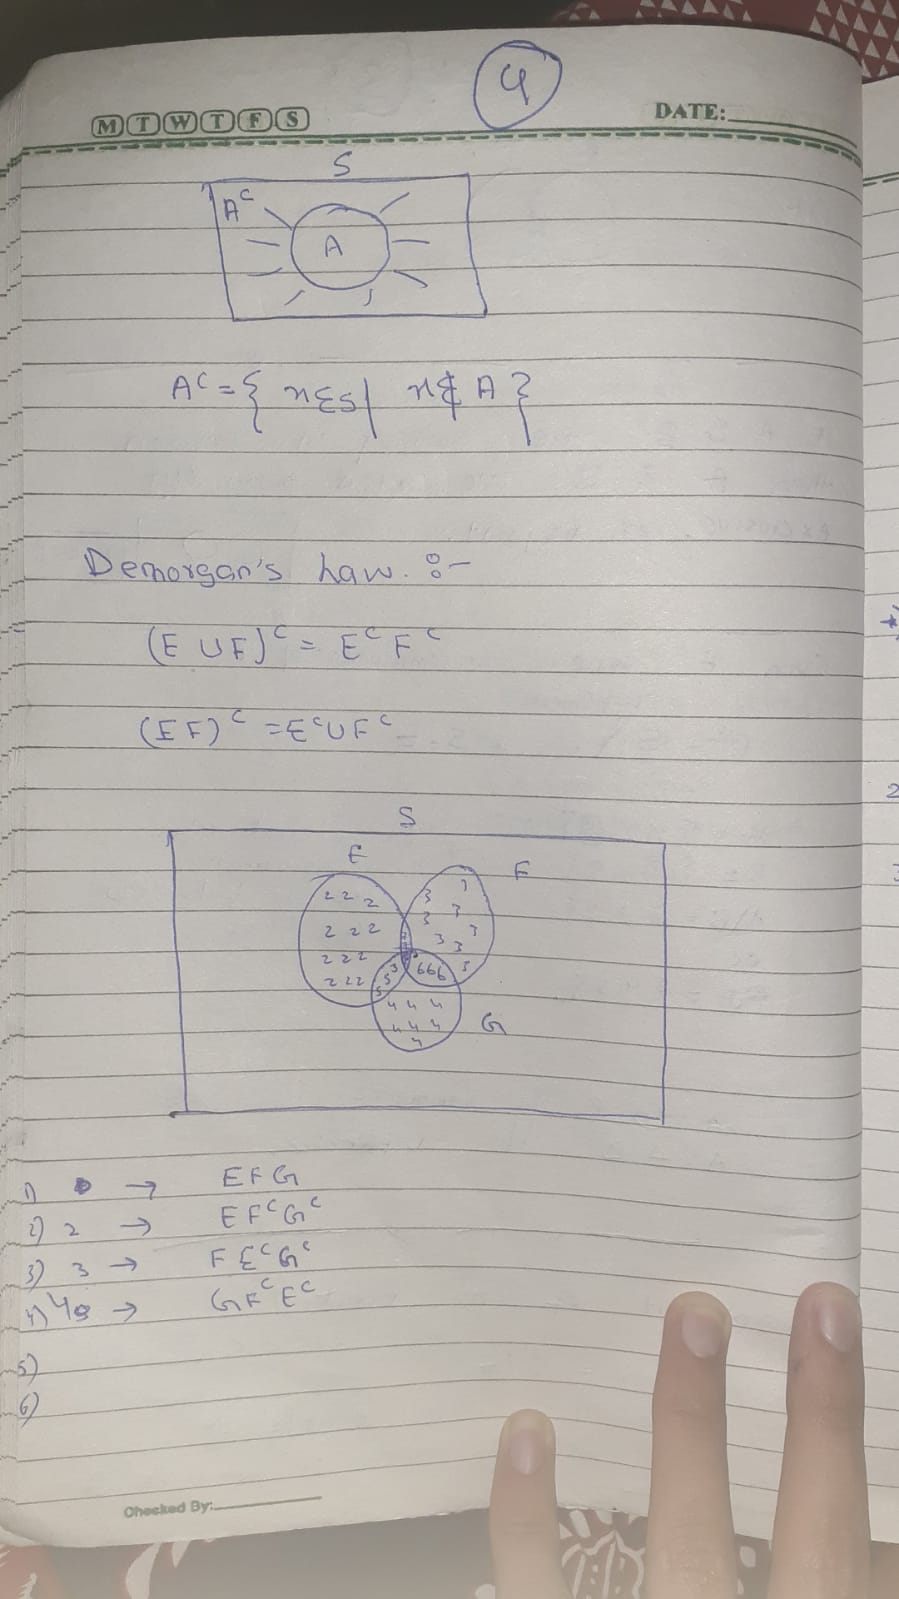 4
M T W T F S
DATE:
S
A^C
A
A^C = { x ∈ S | x ∉ A }
Demorgan's Law. :-
(E ∪ F)^C = E^C F^C
(E F)^C = E^C ∪ F^C
S
E
F
2 2 2
2 2 2
2 2 2
2 2 2
3 3
3 3
3 3
3 3
5 5 5
6 6 6
4 4 4
4 4 4
4
G
1) → E F G
2) 2 → E F^C G^C
3) 3 → F E^C G^C
4) 4 → G F^C E^C
5)
6)
Checked By:
2